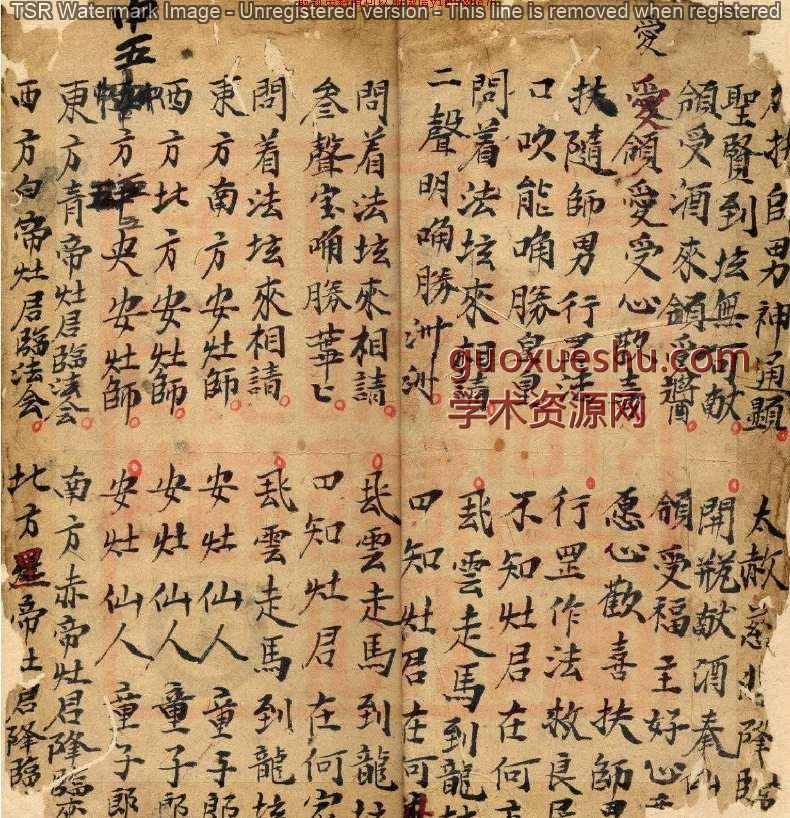 TSR Watermark Image - Unregistered version - This line is removed when registered
愛
男神通顯 太赦慈悲降臨
聖賢到坛無可献 開瓶献酒奉
領受酒來領受 領受福主好心
愛領愛受心歡喜 愿心歡喜扶師男
扶隨師男行罡法 行罡作法救良民
口吹能唃勝 不知灶君在何方
問着法坛來相請 飛雲走馬到龍坛
二聲明唃勝洲洲 四知灶君在何
問着法坛來相請 飛雲走馬到龍坛
叁聲宝唃勝華 四知灶君在何宮
問着法坛來相請 飛雲走馬到龍坛
東方南方安灶師 安灶仙人童子郎
西方北方安灶師 安灶仙人童子郎
方中央安灶師 安灶仙人童子郎
東方青帝灶君臨法会 南方赤帝灶君降臨來
西方白帝灶君臨法会 北方黑帝灶君降臨
guoxueshu.com
学术资源网